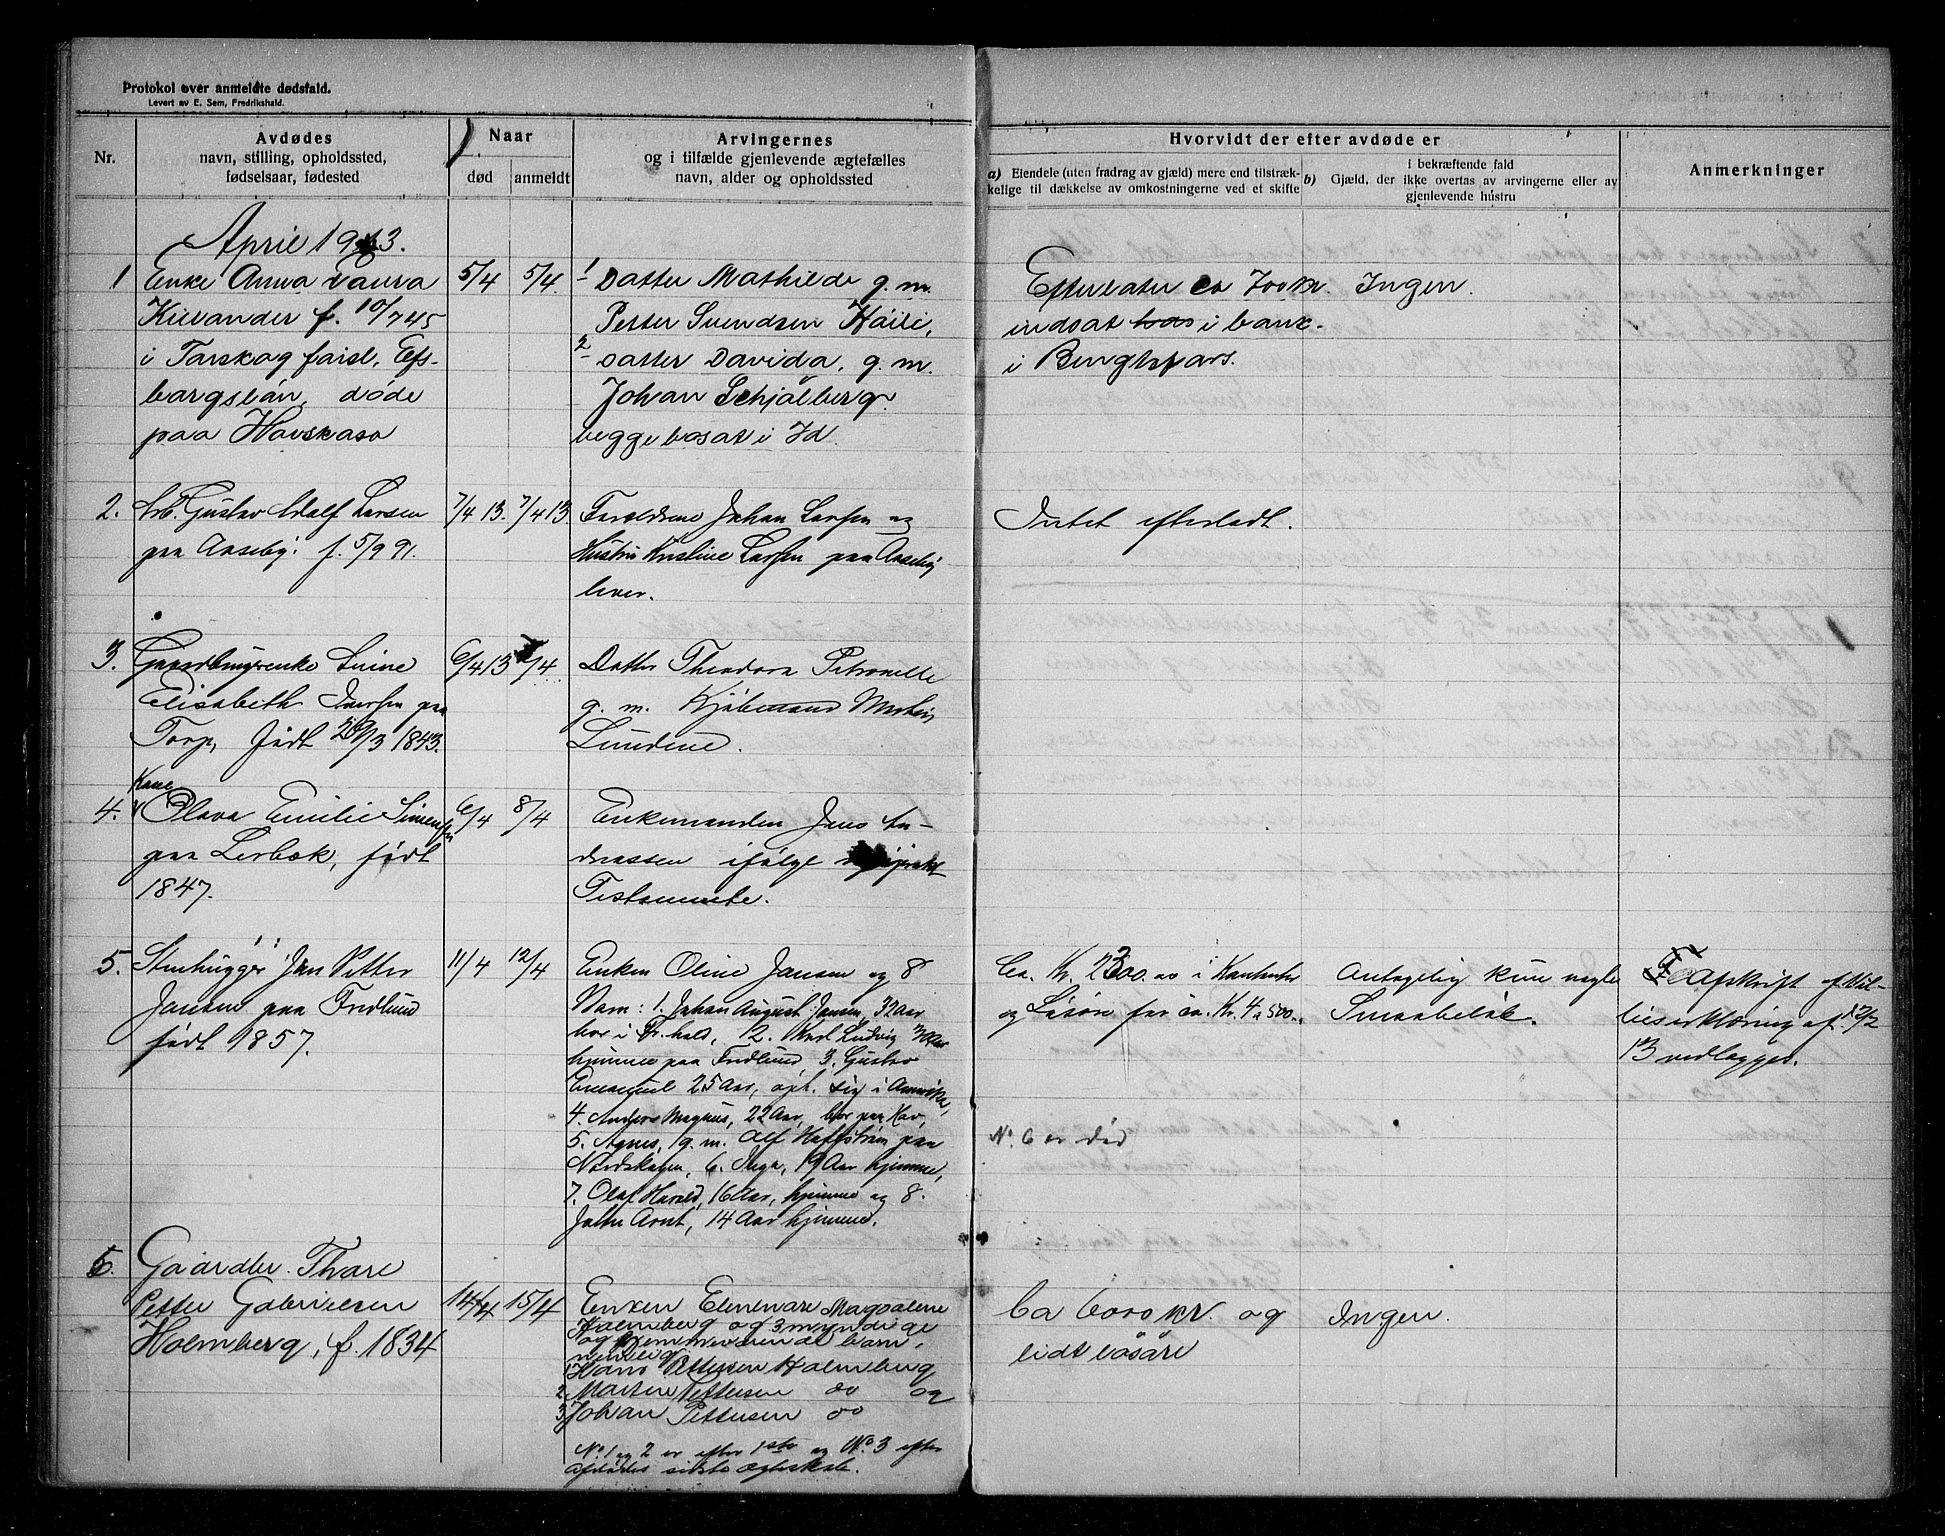 Protokol over anmeldte dødsfald.
Levert av E. Sem, Fredrikshald.
Nr.
Avdødes
navn, stilling, opholdssted,
fødselsaar, fødested
Naar
død
anmeldt
Arvingernes
og i tilfælde gjenlevende ægtefælles
navn, alder og opholdssted
Hvorvidt der efter avdøde er
a) Eiendele (uten fradrag av gjæld) mere end tilstræk-
kelige til dækkelse av omkostningerne ved et skifte
i bekræftende fald
b) Gjæld, der ikke overtas av arvingerne eller av
gjenlevende hustru
Anmerkninger
April 1913.
1
Enke Anna Laura
f. 10/7 45
i Tarskog
døde
paa
5/4
5/4
1 Datter Mathilde g. m.
Petter Svendsen
2 datter Davida, g. m.
Johan
begge bosat i Id
Efterlater ca
indsat i bank
i
Ingen.
2.
Arb. Gustav Adolf Larsen
paa Aaseby. f. 5/9 91.
7/4 13.
7/4 13
Forældrene Johan Larsen og
Hustru Kristine Larsen paa Aaseby
lever.
Intet efterladt.
3.
Gaardbrugerenke
Elisabeth Iversen paa
Torp, født 29/3 1843.
6/4 13
/4
Datter Theodora Petronelle
g. m. Kjøbmand Martin
Lundene.
4.
Kone
Olava Emilie Simensen
paa Lerbæk, født
1847.
6/4
8/4
Enkemanden Jens An-
dreassen ifølge
Testamente.
5.
Stenhugger Jan Petter
Jansen paa Fredlund
født 1857.
11/4
12/4
Enken Oline Jansen og 8
Barn: 1. Johan August Jansen, 32 Aar
bor i Fr.hald, 2. Karl Ludvig Aar
hjemme paa Fredlund, 3. Gustav
Emanuel 25 Aar, oph. sig i Amerika,
4. Anders Magnus, 22 Aar, bor paa Hov,
5. Agnes, g. m. Alf Hafström paa
6. Inga, 19 Aar hjemme,
7. Olaf Harald, 16 Aar, hjemme og 8.
Arnt, 14 Aar hjemme.
Ca. Kr. 2300.00 i Kontanter
og Løsøre for ca. Kr. 4 a 500.
No. 6 er død
Antagelig kun nogle
Smaabeløb.
Afskrift af Vil-
bierklæring af 12/2
13 vedlægges.
6.
Gaardbr. Thore
Petter Gabrielsen
Holmberg, f. 1834
14/4
15/4
Enken Elenmare Magdalene
Holmberg og 3 myndige
og hjemmeværende barn,
nemlig
1 Hans Pettersen Holmberg
2. Martin Pettersen do og
3. Johan Pettersen do
No. 1 og 2 er efter 1ste og No. 3 efter
afdødes sidste ægteskab.
Ca 6000 kr. og
lidt løsøre
Ingen.